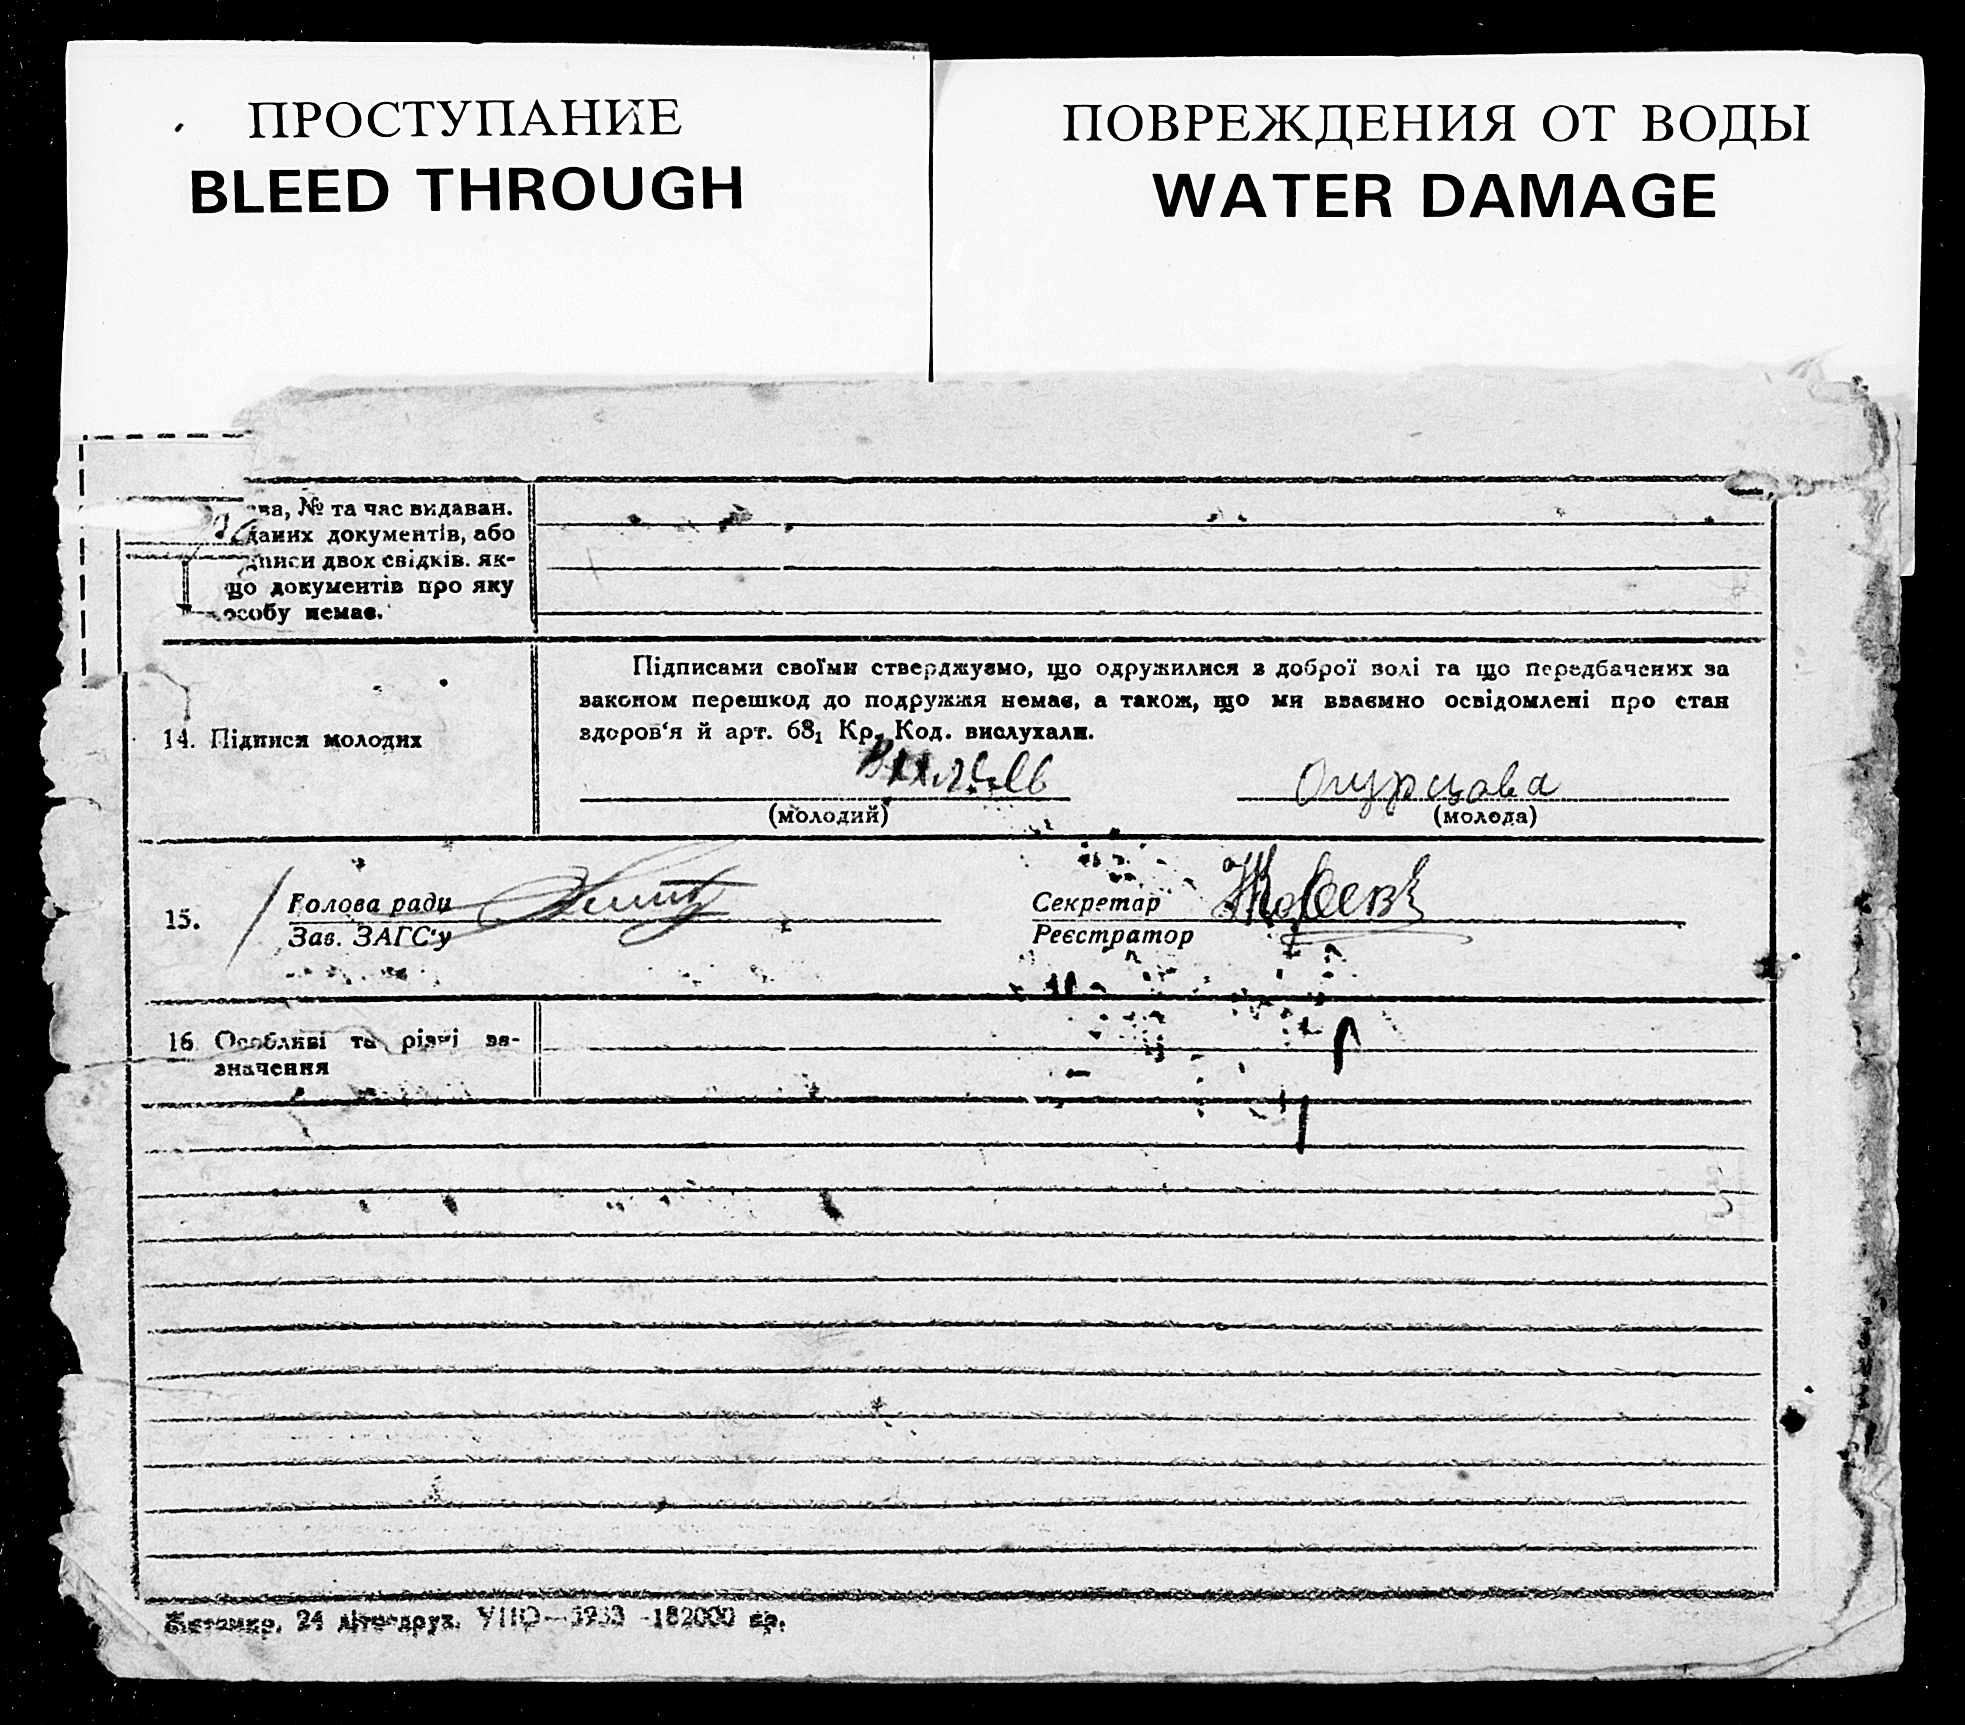 ПРОСТУПАНИЕ
BLEED THROUGH
ПОВРЕЖДЕНИЯ ОТ ВОДЫ
WATER DAMAGE
ва, № та час видаван.
даних документів, або
писи двох свідків. як-
що документів про яку
особу немає.
14. Підписи молодих
Підписами своїми стверджуємо, що одружилися з доброї волі та що передбачених за
законом перешкод до подружжя немає, а також, що ми взаємно освідомлені про стан
здоров'я й арт. 68₁ Кр. Код. вислухали.
Огурцова
(молодий) (молода)
15. Голова ради
Зав. ЗАГС'у
Секретар
Реєстратор
16 Особливі та різні за-
значення
Житомир. 24 182000 пр.